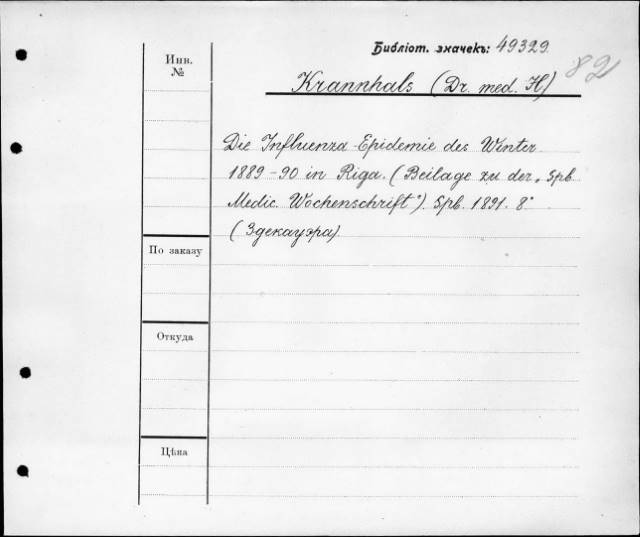 Библіот. значекъ: 49329
82
Инв.
№
Krannhals (Dr. med. H)
Die Influenza-Epidemie des Winter
1889-90 in Riga. (Beilage zu der „Spb.
Medic. Wochenschrift"). Spb. 1891. 8°
(Здекауэра).
По заказу
Откуда
Цѣна